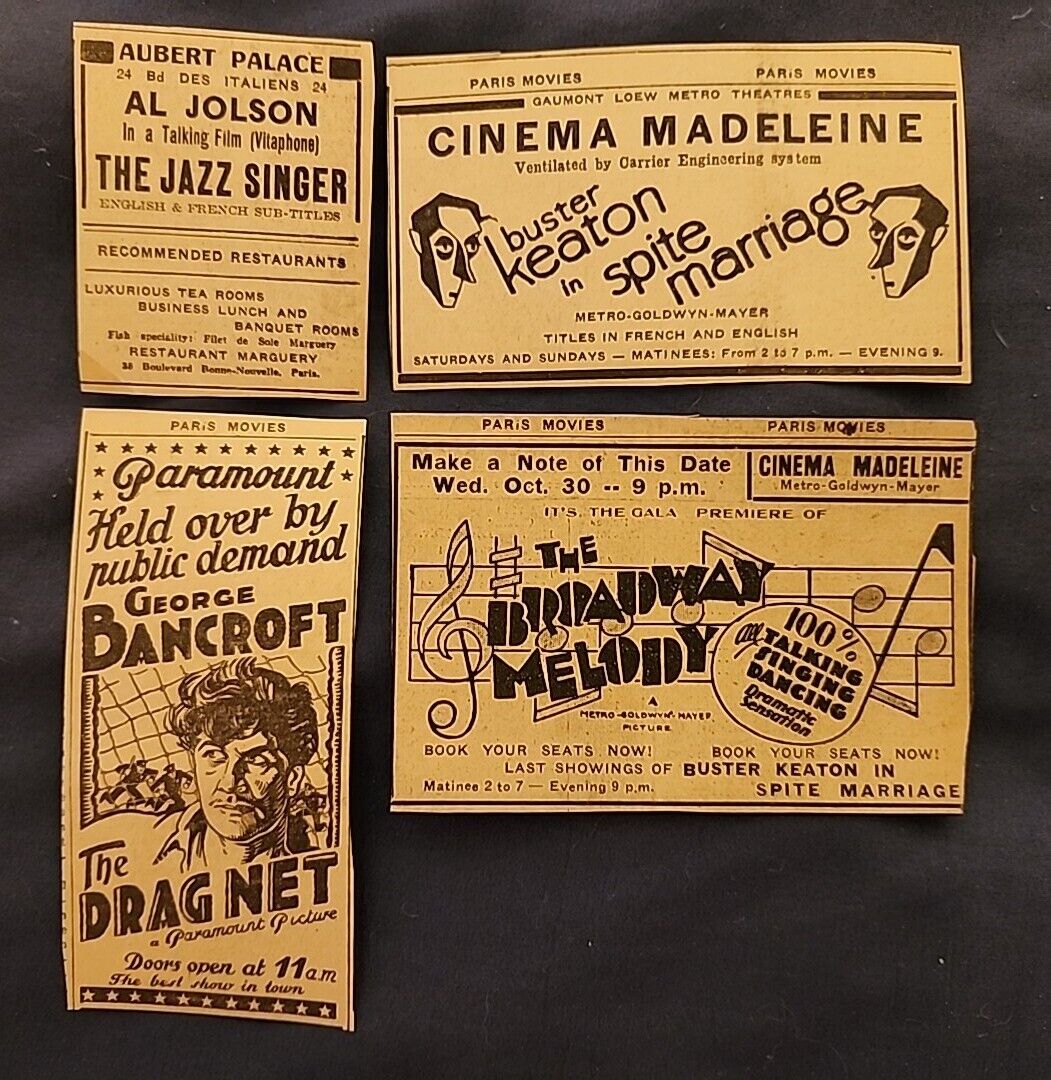 AUBERT PALACE
24 Bd DES ITALIENS 24
AL JOLSON
In a Talking Film (Vitaphone)
THE JAZZ SINGER
ENGLISH & FRENCH SUB-TITLES
RECOMMENDED RESTAURANTS
LUXURIOUS TEA ROOMS
BUSINESS LUNCH AND
BANQUET ROOMS
Fish speciality: Filet de Sole Marguery
RESTAURANT MARGUERY
38 Boulevard Bonne-Nouvelle, Paris.
PARIS MOVIES PARIS MOVIES
GAUMONT LOEW METRO THEATRES
CINEMA MADELEINE
Ventilated by Carrier Engineering system
buster
keaton
in spite
marriage
METRO-GOLDWYN-MAYER
TITLES IN FRENCH AND ENGLISH
SATURDAYS AND SUNDAYS — MATINEES: From 2 to 7 p.m. — EVENING 9.
PARIS MOVIES
Paramount
Held over by
public demand
GEORGE
BANCROFT
The
DRAG NET
a Paramount Picture
Doors open at 11 a.m
The best show in town
PARIS MOVIES PARIS MOVIES
Make a Note of This Date
Wed. Oct. 30 -- 9 p.m.
CINEMA MADELEINE
Metro-Goldwyn-Mayer
IT'S, THE GALA PREMIERE OF
THE
BROADWAY
MELODY
A
METRO-GOLDWYN-MAYER
PICTURE
100%
all TALKING
SINGING
DANCING
Dramatic
Sensation
BOOK YOUR SEATS NOW! BOOK YOUR SEATS NOW!
LAST SHOWINGS OF BUSTER KEATON IN
Matinee 2 to 7 — Evening 9 p.m. SPITE MARRIAGE